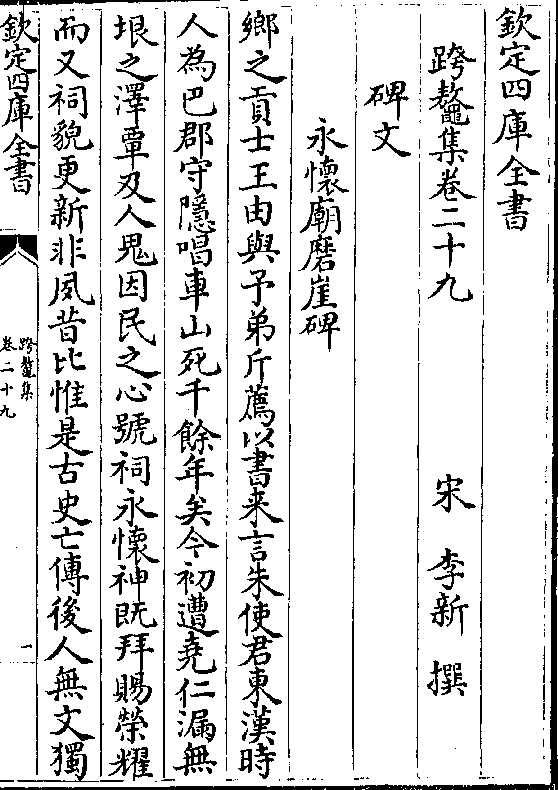 欽定四庫全書
跨鼇集卷二十九
宋　李新　撰
碑文
永懷廟磨崖碑
鄉之貢士王由與予弟斤薦以書来言朱使君東漢時
人為巴郡守隱唱車山死千餘年矣今初遭堯仁漏無
垠之澤覃及人鬼因民之心號祠永懷神既拜賜榮耀
而又祠貌更新非夙昔比惟是古史亡傳後人無文獨
欽定四庫全書
跨鼇集
卷二十九
一